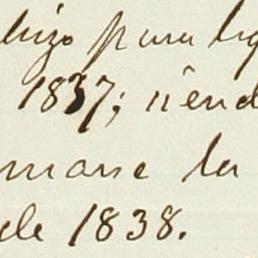 hizo para lig
1837; siend
marse la
de 1838.